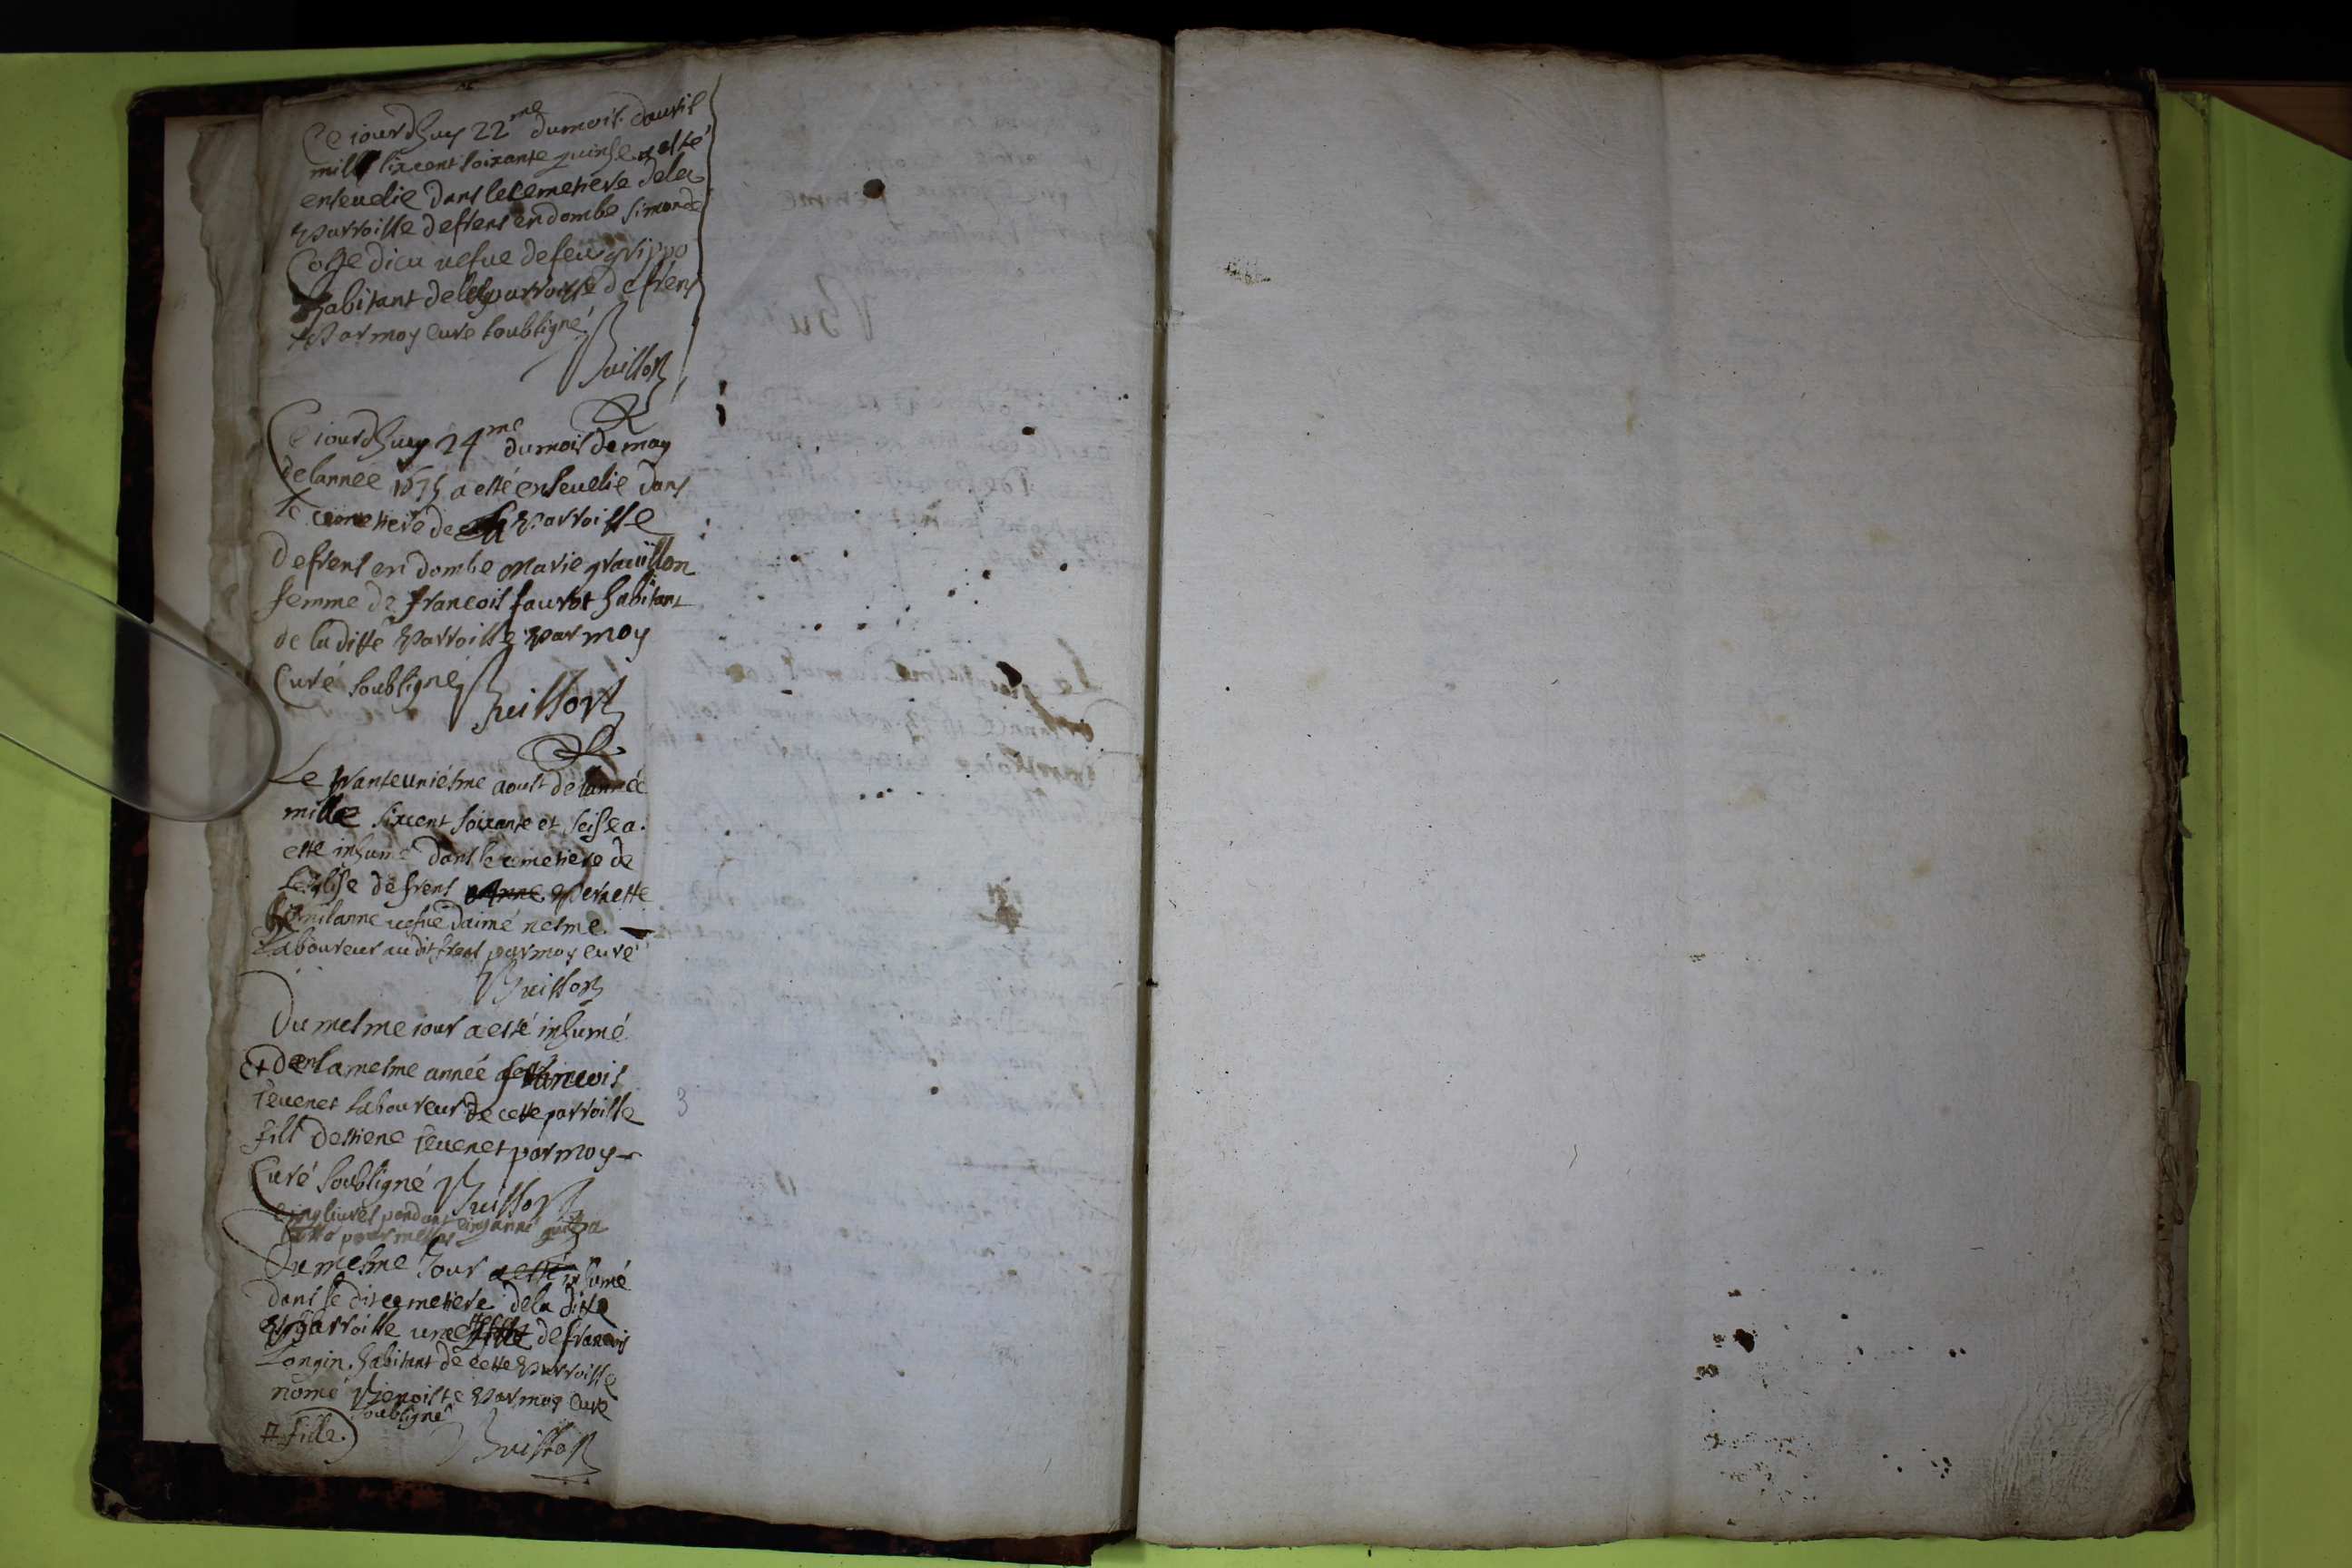 Ce iourdhuy 22me du mois dauril
mille sixcent soixante quinse a esté
enseuelie dans le cemetiere de la
parroisse de frens en dombe simonde
Coste dieu uefue de feu grippo
habitant de la parroisse de frens
par moy curé soubsigné
Buisson
Ce iourdhuy 24me du mois de may
de lannée 1675 a esté enseuelie dans
le cemetiere de la parroisse
de frens en dombe marie grauillon
femme de francois faurot habitant
de la ditte parroisse par moy
Curé soubsigné Buisson
Le tranteuniesme aoust de lannée
mille sixcent soixante et seise a
esté inhumé dans le cemetiere de
leglise de frens pernette
uefue daimé nesme
Laboureur audit frens par moy curé
Buisson
Du mesme iour a esté inhumé
Et dans la mesme année francois
ieuenet laboureur de cette parroisse
fils destiene ieuenet par moy
Curé soubsigné Buisson
cinq liures pendant cinq année
Du mesme Jour a esté inhumé
dans le dit cemetiere de la ditte
parroisse une de francois
Longin habitant de cette parroisse
nomé Benoiste par moy curé
soubsigné
# fille Buisson
3